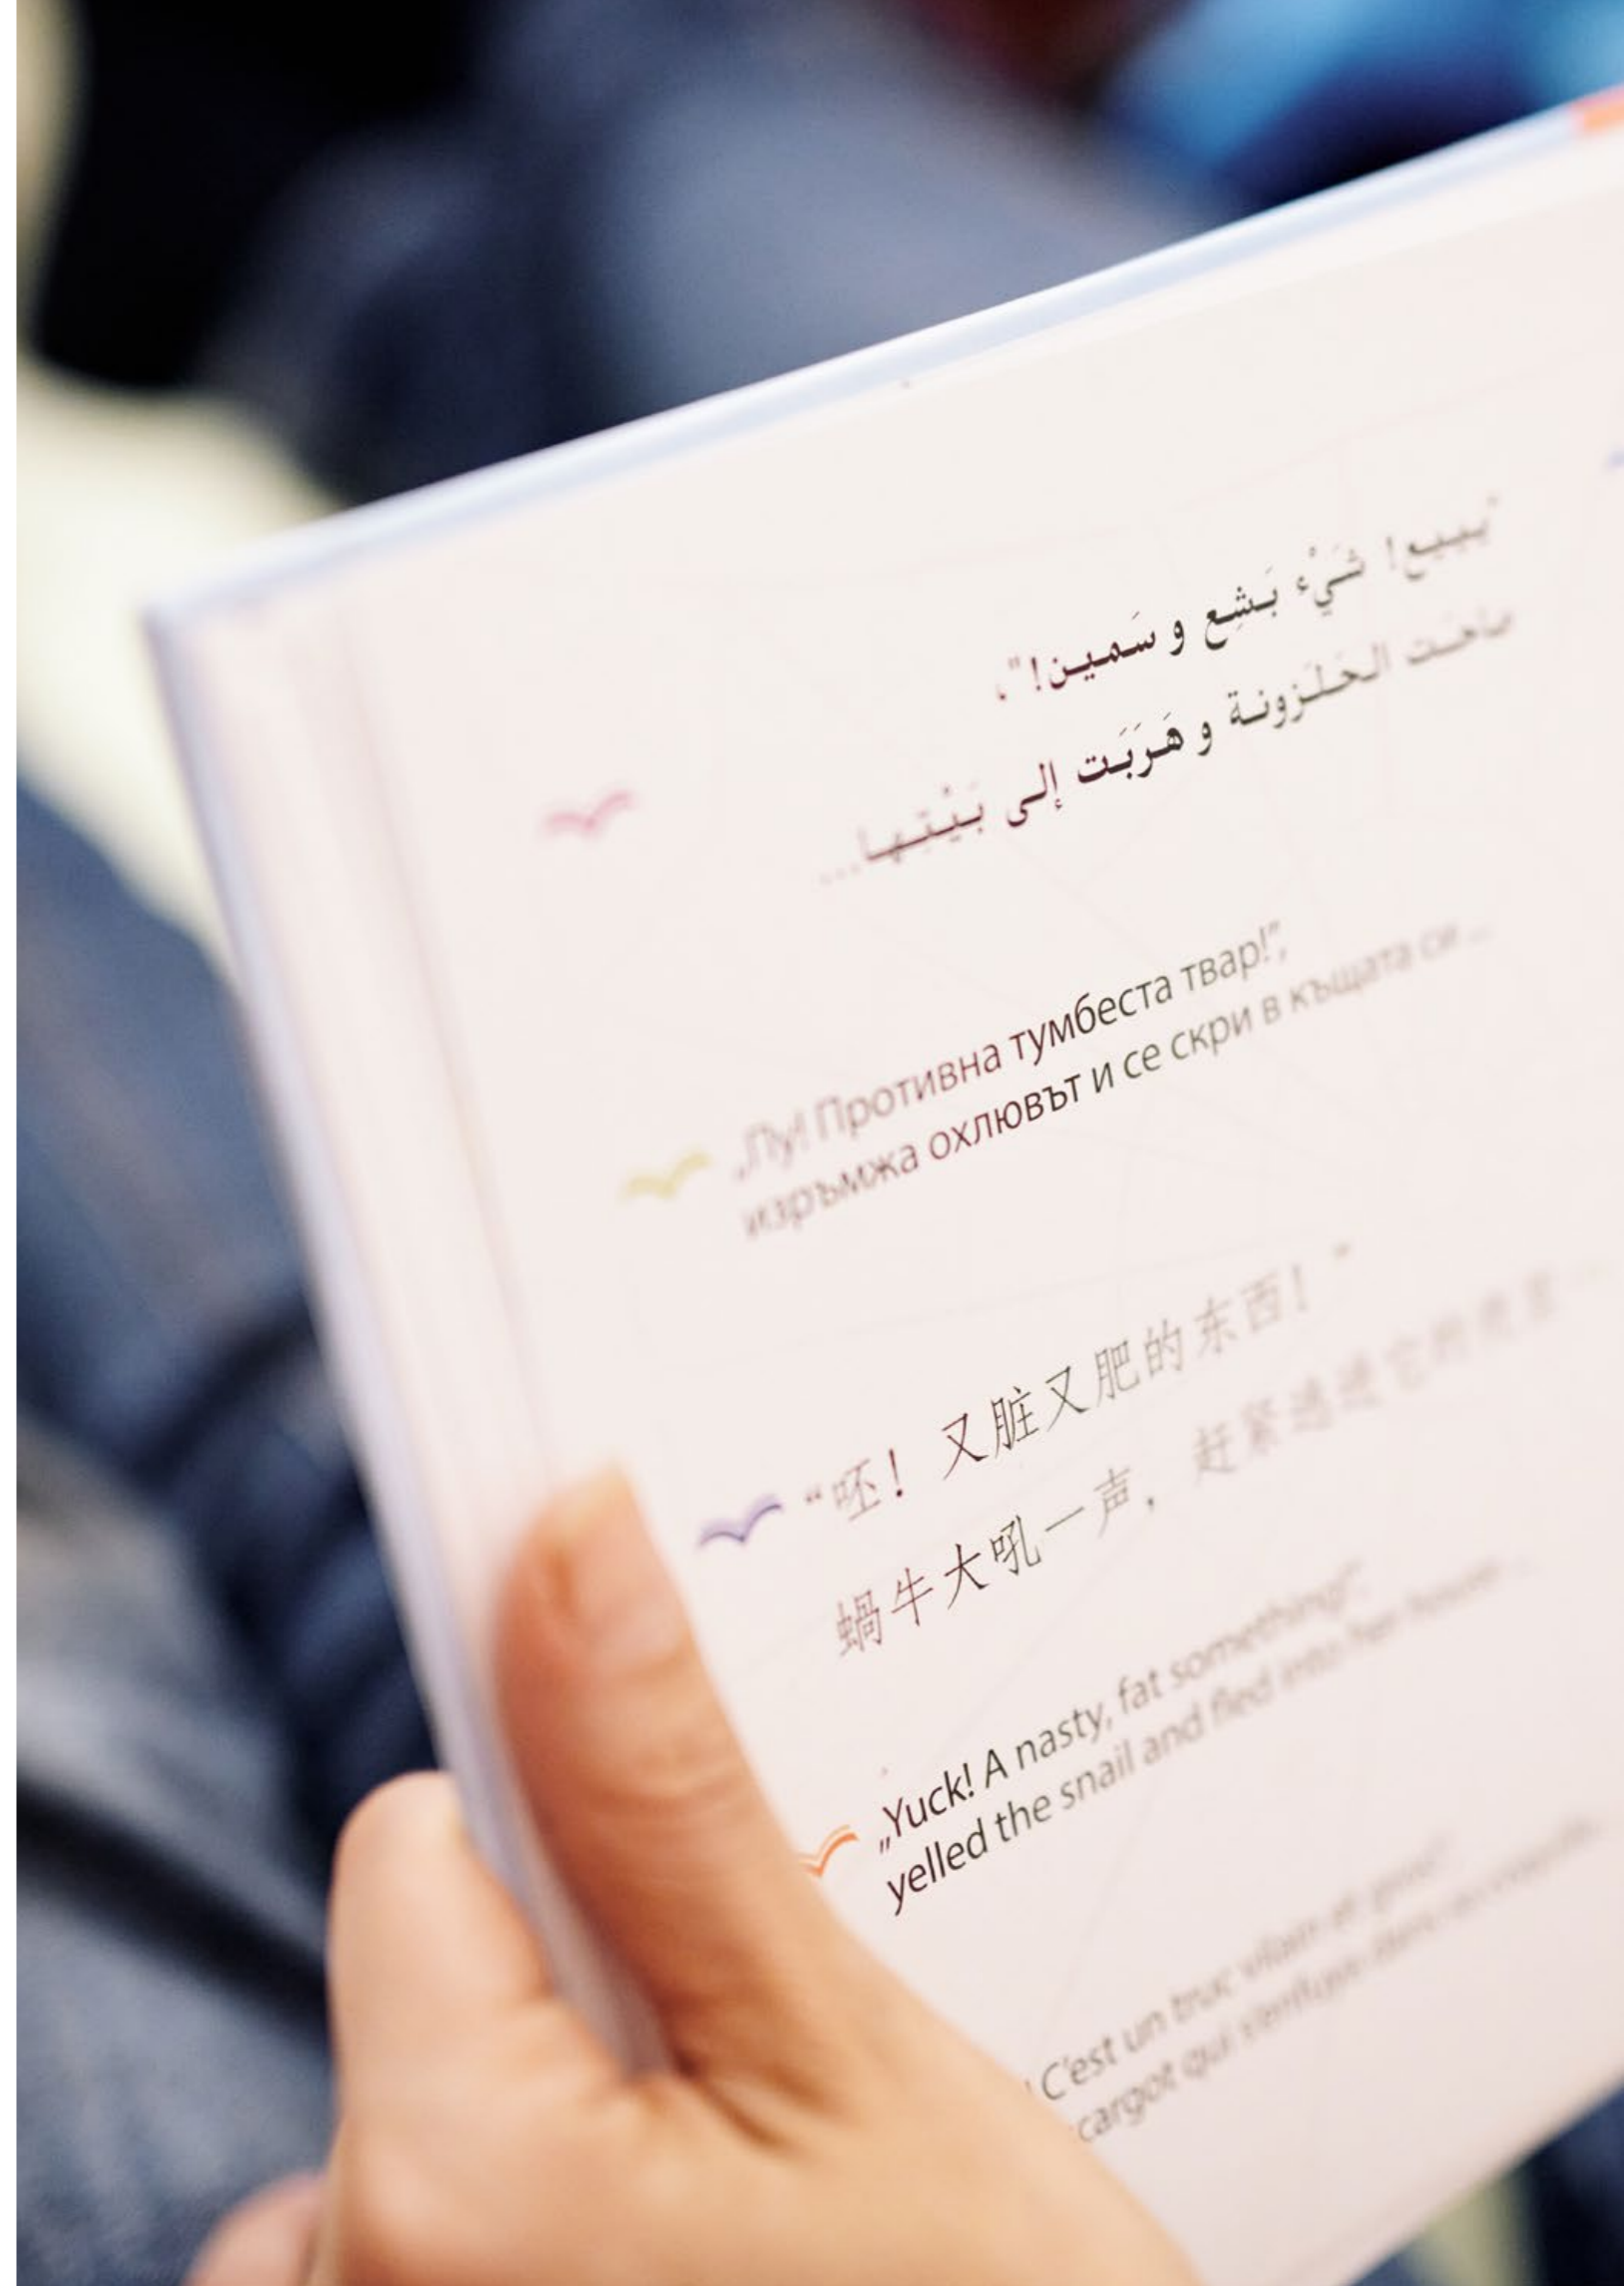 "ييييع! شَيْء بَشِع و سَمين!"،
صاحَت الحَلَزونة و هَرَبَت إلى بَيْتِها...
„Пу! Противна тумбеста твар!”,
изръмжа охлювът и се скри в къщата си ...
“呸！又脏又肥的东西！”
蝸牛大吼一声，赶紧逃进它的
„Yuck! A nasty, fat something!”,
yelled the snail and fled into her house ...
! C’est un truc vilain et gros”,
cargot qui s’enfuye dans sa coquille